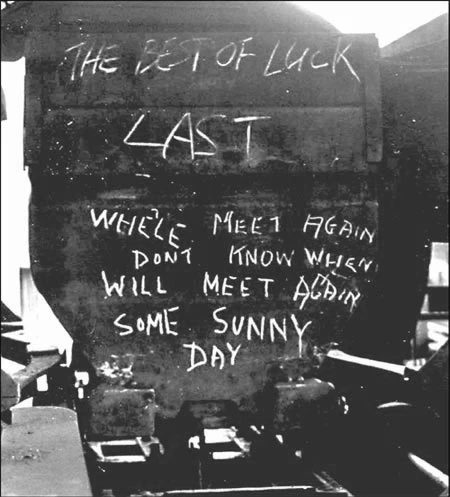 THE BEST OF LUCK
LAST
WHE'LE MEET AGAIN
DONT KNOW WHEN
WILL MEET AGAIN
SOME SUNNY
DAY